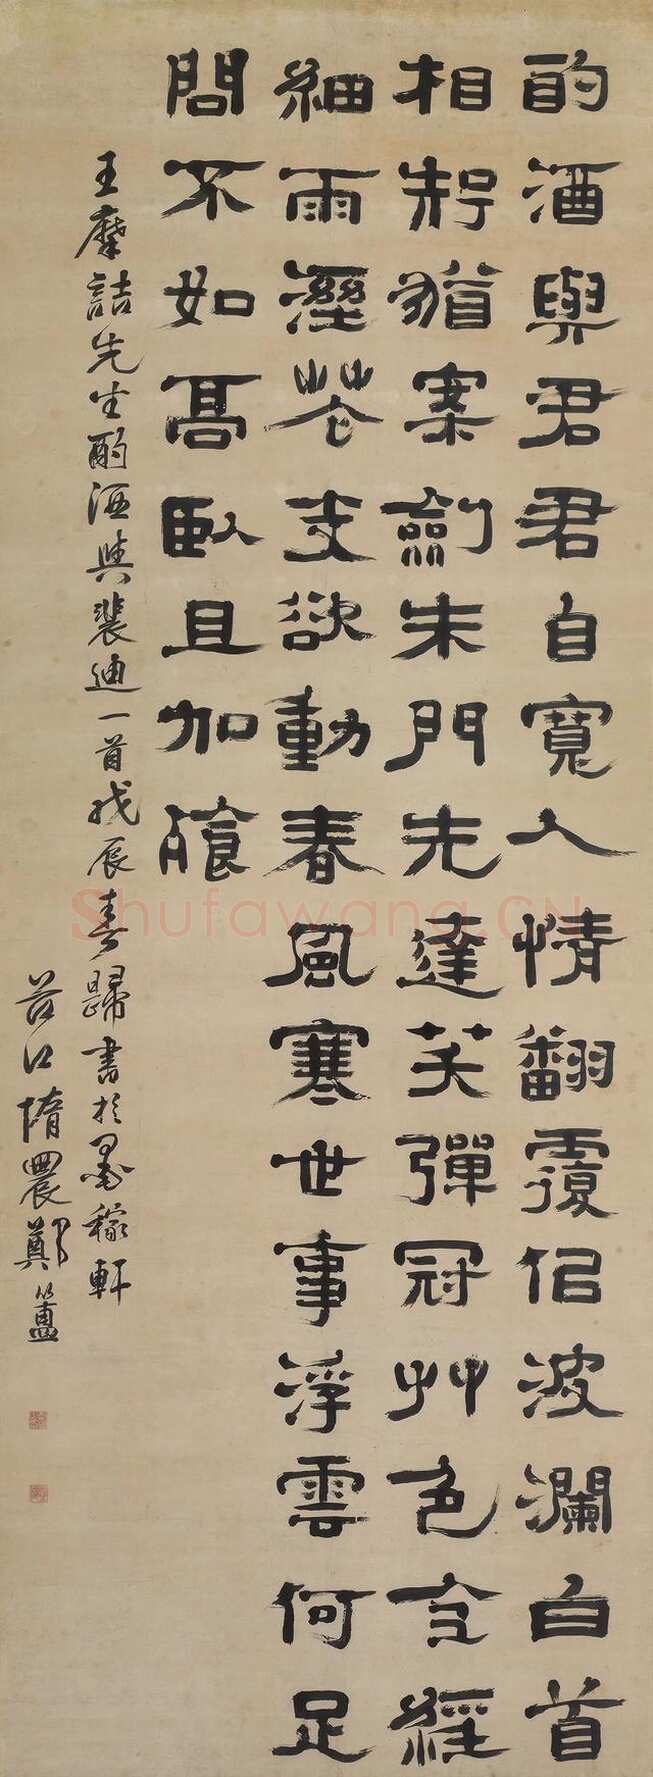 酌酒與君君自寬人情翻覆佀波瀾白首
相知猶案劍朱門先達笑彈冠艸色全經
細雨溼花支欲動春風寒世事浮雲何足
問不如高臥且加餐
王摩詰先生酌酒與裴迪一首戊辰春歸書於墨稼軒
谷口惰農鄭簠
Shufawang.CN